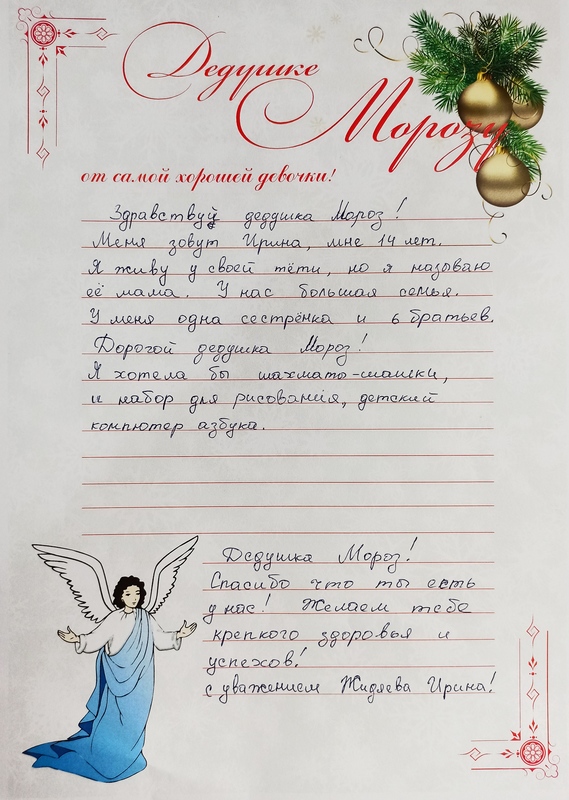 Дедушке
Морозу
от самой хорошей девочки!
Здравствуй дедушка Мороз!
Меня зовут Ирина, мне 14 лет.
Я живу у своей тёти, но я называю
её мама. У нас большая семья.
У меня одна сестрёнка и 6 братьев.
Дорогой дедушка Мороз!
Я хотела бы шахмато-шашки,
и набор для рисования, детский
компютер азбука.
Дедушка Мороз!
Спасибо что ты есть
у нас! Желаем тебе
крепкого здоровья и
успехов!
с уважением Жидяева Ирина!